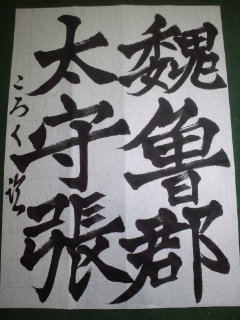 魏魯郡
太守張
ころく